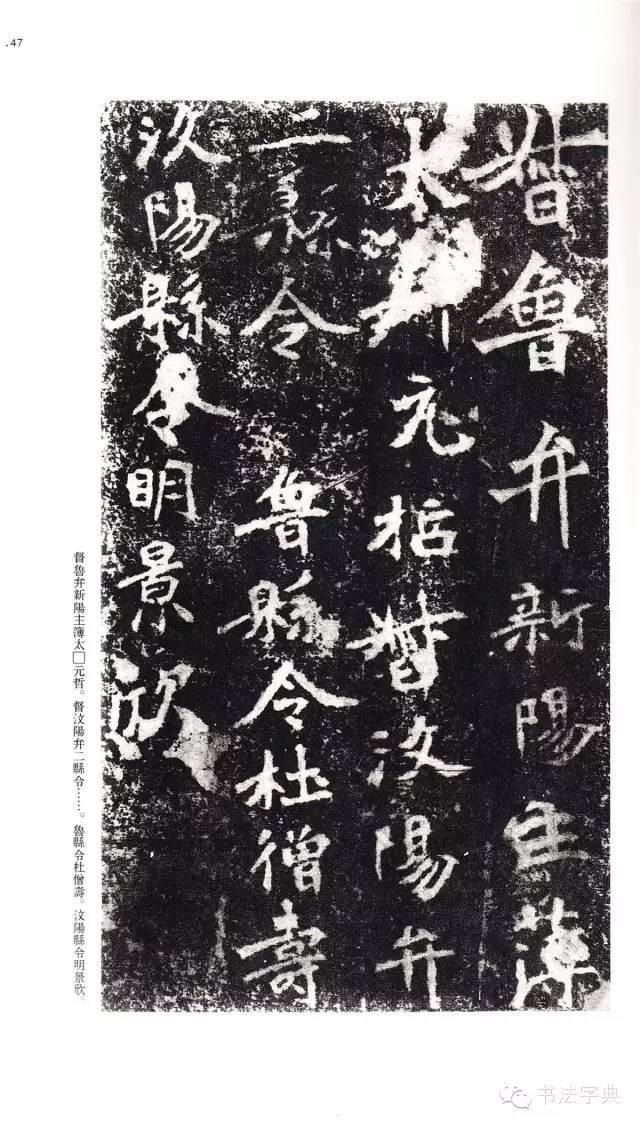 .47
督魯弁新陽主簿
太
元哲督汶陽弁
二縣令 魯縣令杜僧壽
汶陽縣令明景欣
督魯弁新陽主簿太□元哲。督汶陽弁二縣令……。魯縣令杜僧壽。汶陽縣令明景欣。
书法字典